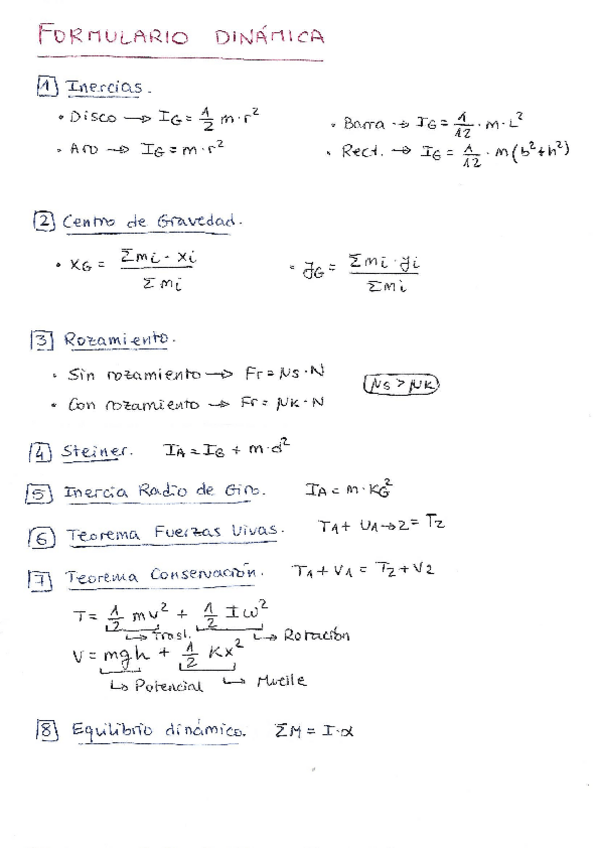 FORMULARIO DINÁMICA
1 Inercias.
• Disco → IG = 1/2 m·r²
• Barra → IG = 1/12 · m · L²
• Aro → IG = m·r²
• Rect. → IG = 1/12 · m (b²+h²)
2 Centro de Gravedad.
• XG = Σmi · xi / Σmi
• yG = Σmi · yi / Σmi
3 Rozamiento.
• Sin rozamiento → Fr = μs · N
μs > μk
• Con rozamiento → Fr = μk · N
4 Steiner. IA = IG + m·d²
5 Inercia Radio de Giro. IA = m·KG²
6 Teorema Fuerzas Vivas. T1 + U1→2 = T2
7 Teorema Conservación. T1 + V1 = T2 + V2
T = 1/2 mv² + 1/2 Iω²
↳ Trasl. ↳ Rotación
V = mgh + 1/2 Kx²
↳ Potencial ↳ Muelle
8 Equilibrio dinámico. ΣM = I·α